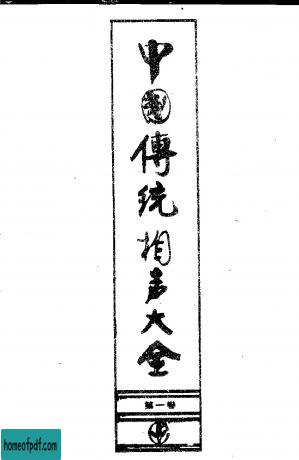 中國傳统相声大全
第一卷
homeofpdf.com